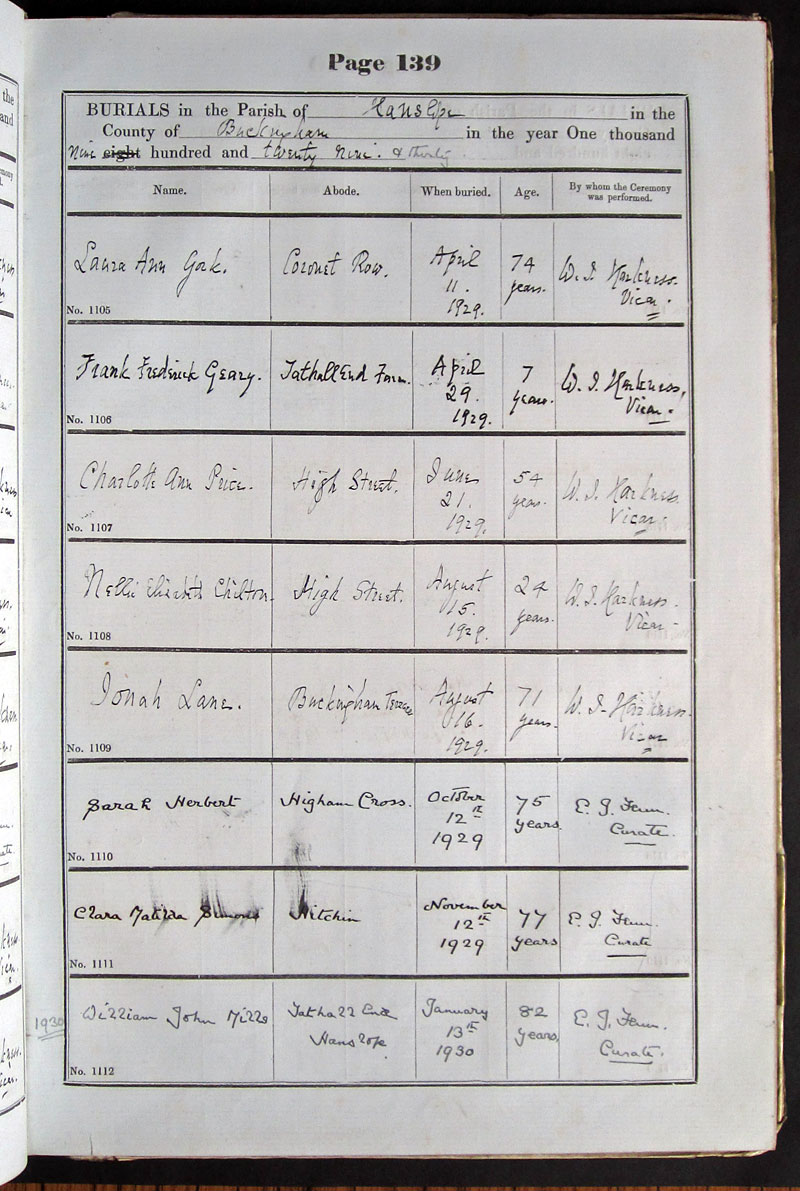 Page 139
BURIALS in the Parish of Hanslope in the
County of Buckingham in the year One thousand
Nine eight hundred and twenty nine. & thirty.
Name. Abode. When buried. Age. By whom the Ceremony was performed.
Laura Ann Gork. Coronet Row. April 11. 1929. 74 years. W. J. Harkness. Vicar.
No. 1105
Frank Frederick Geary. Tathall End Farm. April 29. 1929. 7 years. W. J. Harkness, Vicar.
No. 1106
Charlotte Ann Price. High Street. June 21. 1929. 54 years. W. J. Harkness. Vicar.
No. 1107
Nellie Elizabeth Chilton. High Street. August 15. 1929. 24 years. W. J. Harkness. Vicar.
No. 1108
Jonah Lane. Buckingham Terrace August 16. 1929. 71 years. W. J. Harkness. Vicar
No. 1109
Sarah Herbert Higham Cross. October 12th 1929 75 years. E. J. Fenn. Curate.
No. 1110
Clara Matilda Simons Hitchin November 12th 1929 77 years E. J. Fenn. Curate
No. 1111
1930
William John Mills Tathall End Hanslope January 13th 1930 82 years. E. J. Fenn. Curate.
No. 1112